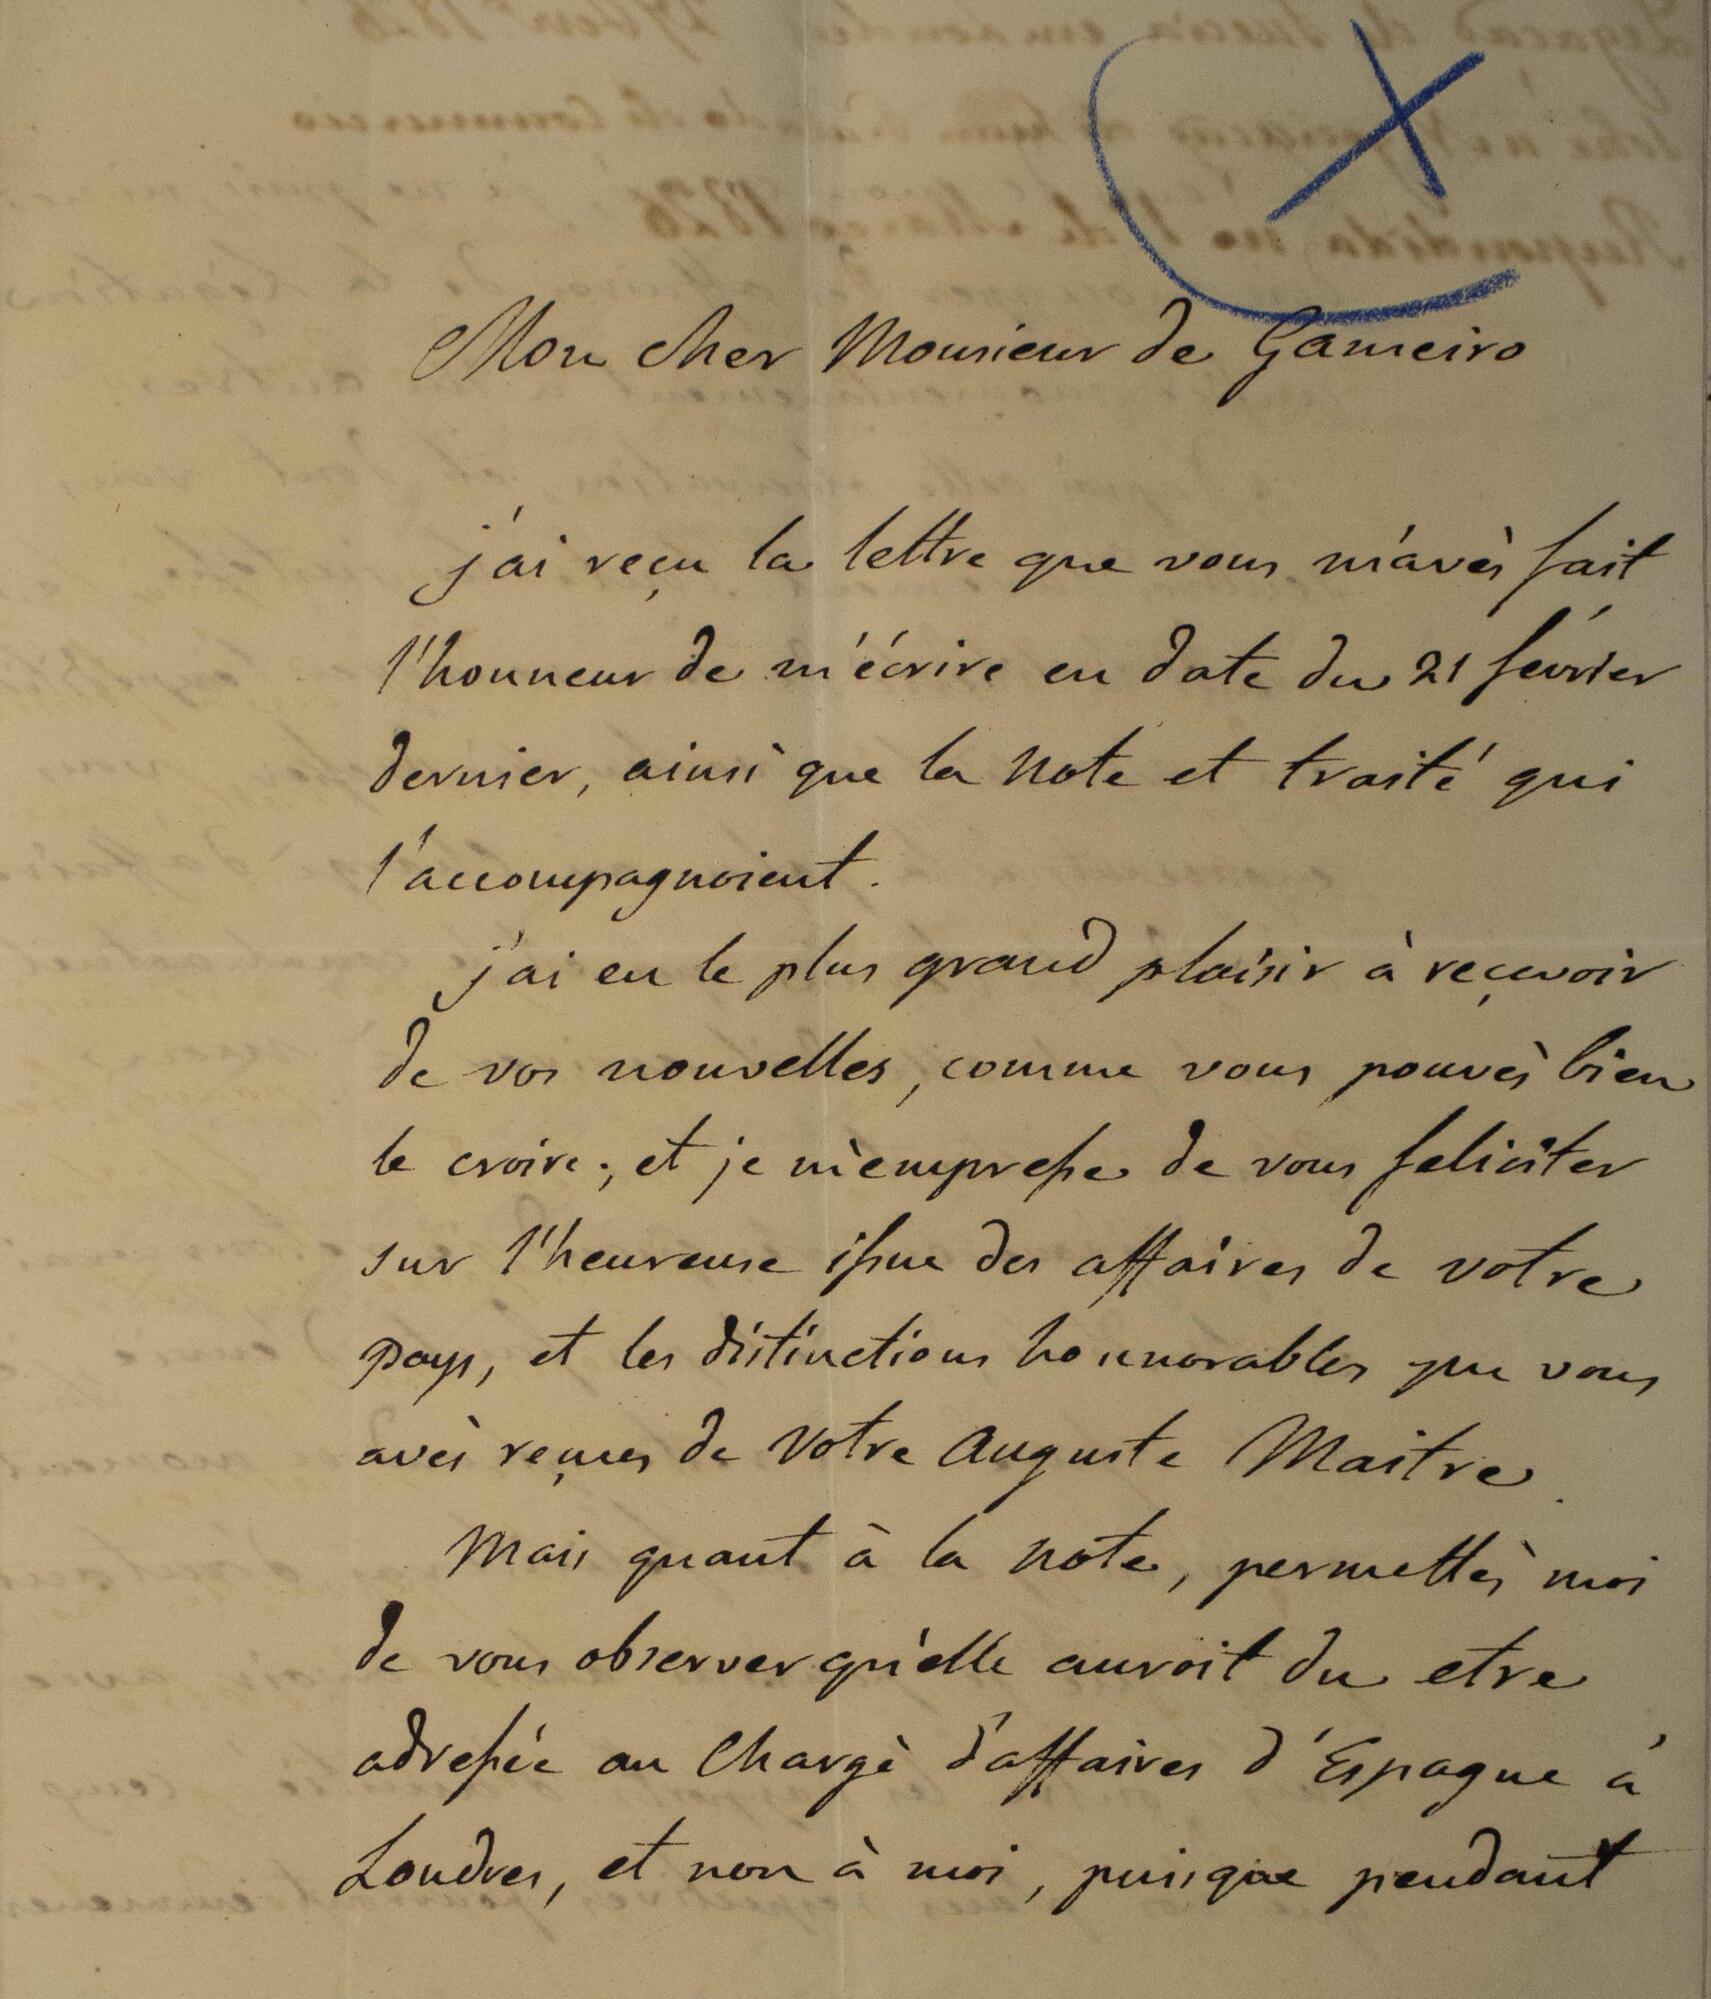 Mon cher Monsieur de Gameiro
j'ai reçu la lettre que vous m'avès fait
l'honneur de m'écrire en date du 21 février
dernier, ainsi que la note et traité qui
l'accompagnoient.
j'ai eu le plus grand plaisir à reçevoir
de vos nouvelles, comme vous pouvès bien
le croire; et je m'empresse de vous feliciter
sur l'heureuse issue des affaires de votre
pays, et les distinctions honnorables que vous
avès reçues de votre Auguste Maitre.
Mais quant à la note, permettès moi
de vous observer qu'elle auroit du etre
adressée au Chargè d'affaires d'Espagne à
Londres, et non à moi, puisque pendant